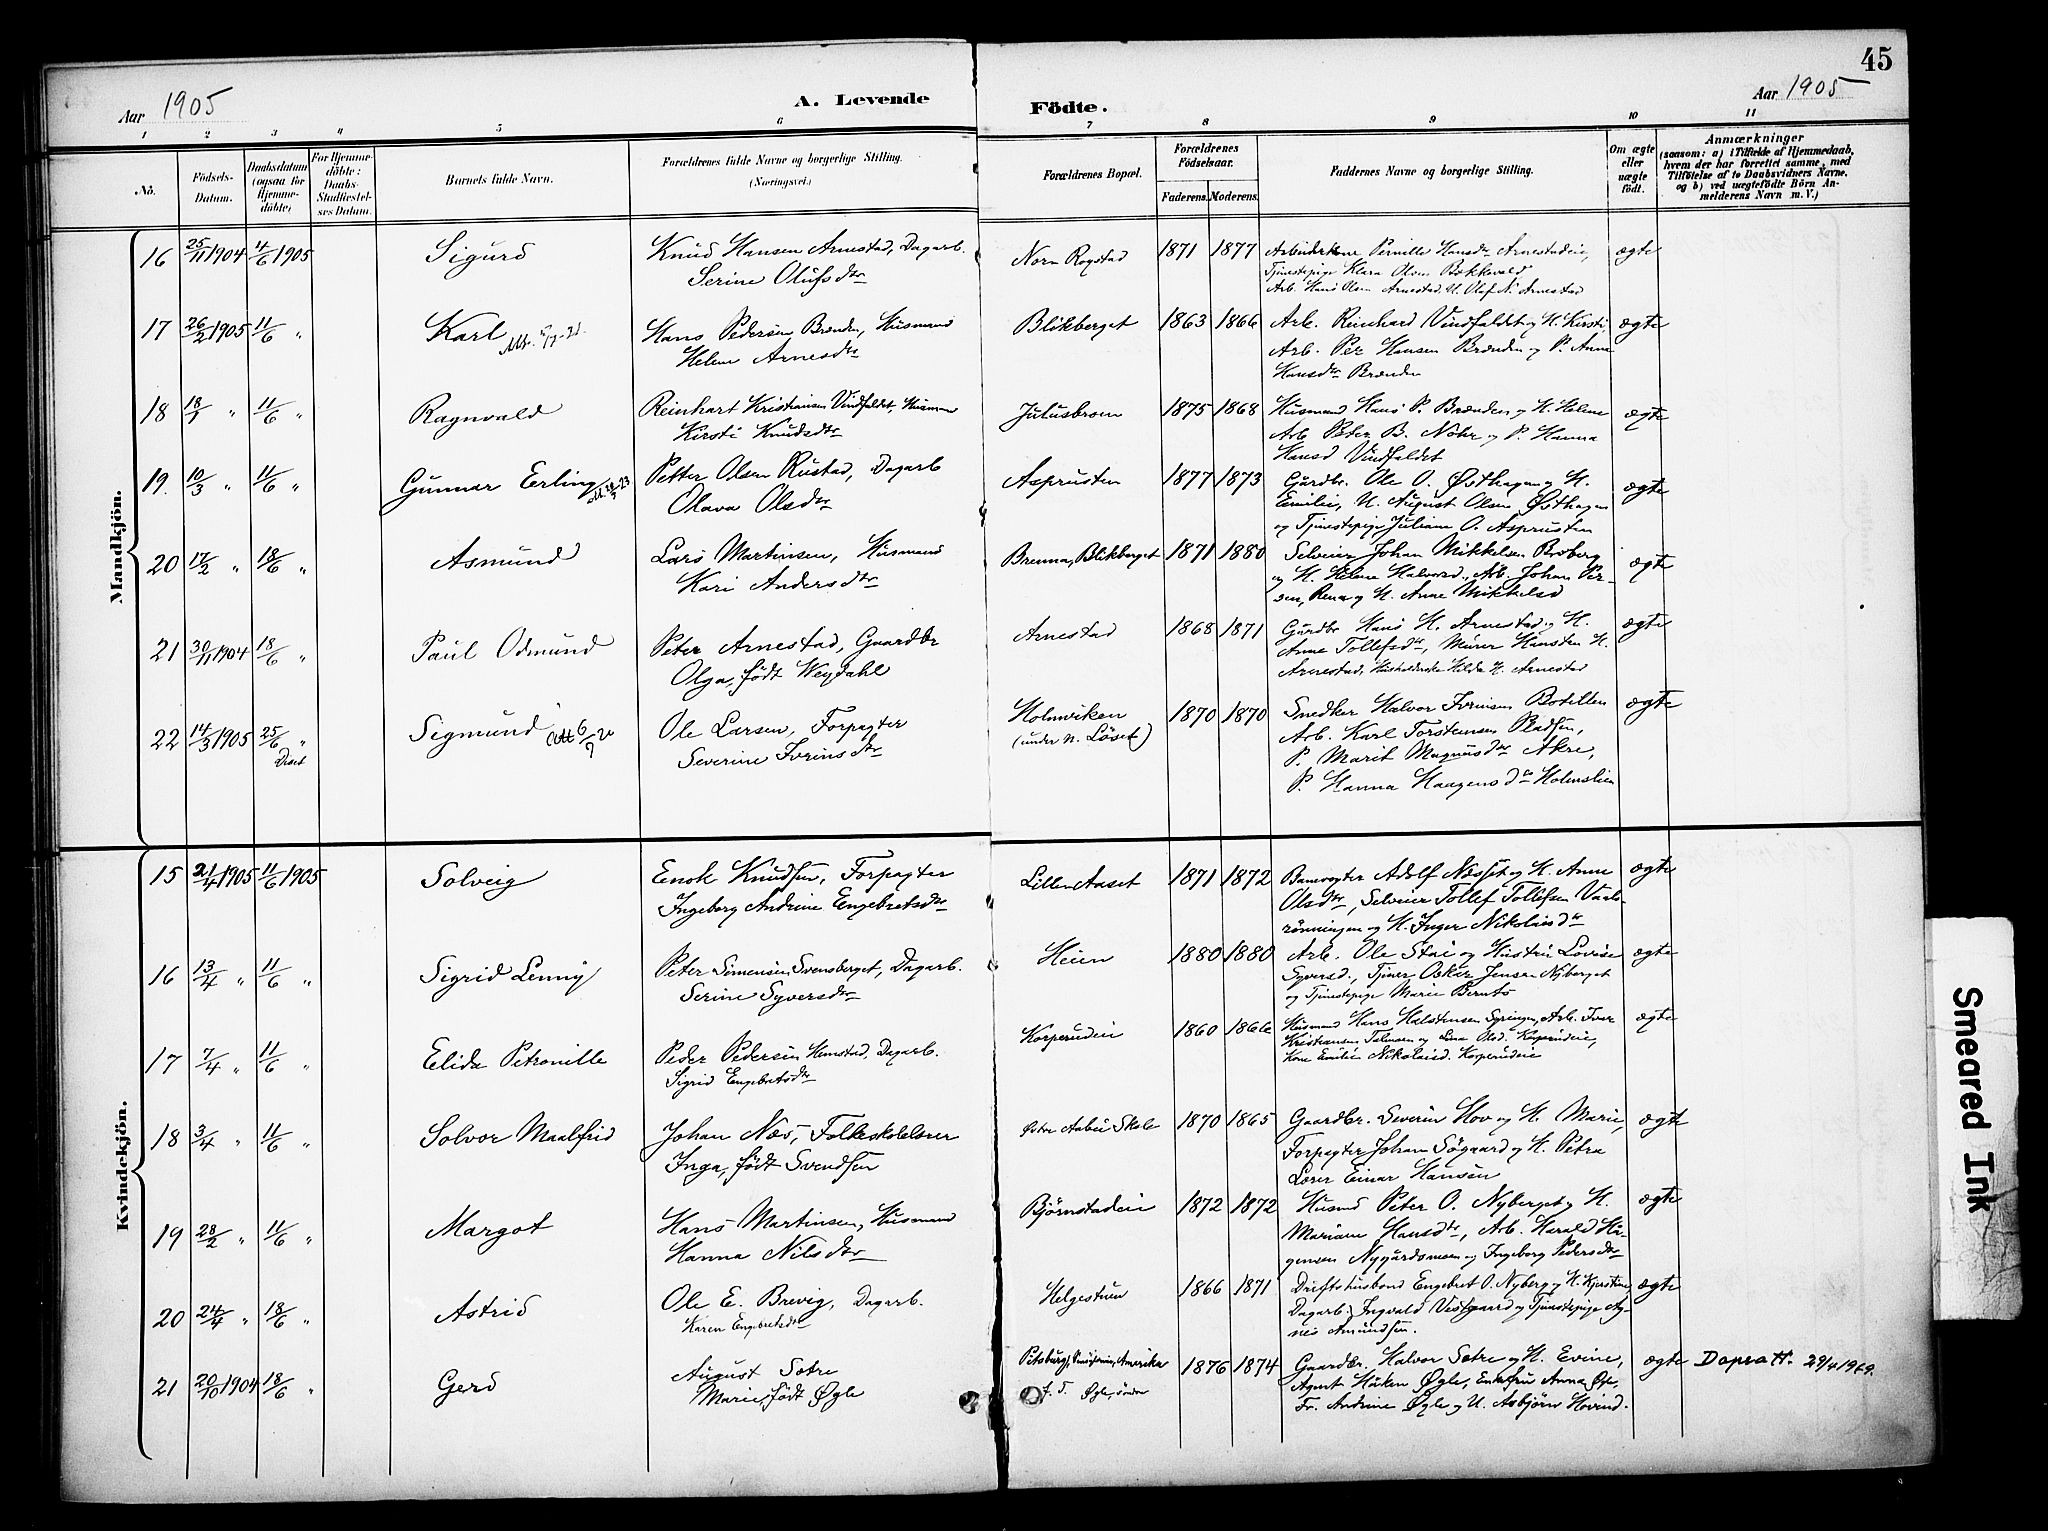 45
Aar 1905
A. Levende
Födte.
Aar 1905
1 2 3 4 5 6 7 8 9 10 11
No.
Födsels-Datum.
Daabsdatum (ogsaa for Hjemmedöbte)
For Hjemmedöbte: Daabs-Stadfæstelses Datum.
Barnets fulde Navn.
Forældrenes fulde Navne og borgerlige Stilling. (Næringsvei.)
Forældrenes Bopæl.
Forældrenes Födselsaar.
Faderens. Moderens.
Faddernes Navne og borgerlige Stilling.
Om ægte eller uægte födt.
Anmærkninger
(saasom: a) i Tilfælde af Hjemmedaab, hvem der har forrettet samme, med Tilföielse af to Daabsvidners Navne, og b) ved uægtefödte Börn Anmelderens Navn m.V.)
Mandkjön.
16 25/11 1904 4/6 1905 Sigurd Knud Hansen Arnestad, Dagarb. Nora Rogstad 1871 1877 Arbeiderkone Pernille Hansdtr Arnestadeie, ægte
Serine Olufsdtr Tjenestepige Klara Olsen Bakkevold
Arb. Hans Olsen Arnestad, U. Olaf N. Arnestad
17 26/2 1905 11/6 " Karl Hans Pedersen Brænden, Husmand Blikberget 1863 1866 Arb. Reinhard Vindfaldet og H. Kirsti, ægte
Helene Arnesdtr Arb. Per Hansen Brænden og P. Anne
Hansdtr Brænden
18 18/1 " 11/6 " Ragnvald Reinhart Kristiansen Vindfaldet, Husmand Julusbroen 1875 1868 Husmand Hans P. Brænden og H. Helene ægte
Kirsti Knudsdtr Arb. Peter B. Nohr og P. Hanna
Hansd Vindfaldet
19. 10/3 " 11/6 " Gunnar Erling Petter Olsen Rustad, Dagarb Asprusten 1877 1873 Gårdbr. Ole O. Østhagen og H. ægte
Olava Olsdtr Emilie, U. August Olsen Østhagen
og Tjenestepige Juliane O. Asprusten
20 17/2 " 18/6 " Asmund Lars Martinsen, Husmand Brenna, Blikberget 1871 1880 Selveier Johan Mikkelsen Broberg ægte
Kari Andersdtr og H. Helene Halvorsd., Arb. Johan Per-
sen, Rena og H. Anne Mikkelsd
21 30/11 1904 18/6 " Paul Odmund Peter Arnestad, Gaardbr Arnestad 1868 1871 Gårdbr Hans H. Arnestad og H. ægte
Olga, født Weydahl Anne Tollefsdtr, Murer Hansten H.
Arnestad, Husholderske Hilda H. Arnestad
22 14/3 1905 25/6 " Sigmund Att 6/7 20 Ole Larsen, Forpagter Holmviken 1870 1870 Snedker Halvor Iversen Botillen ægte
Deset Severine Iversdtr (under n. Löset) Arb. Karl Torstensen Pladsen,
P. Marit Magnusdtr Akre,
P. Hanna Haagensdtr Holmslien
Kvindekjön.
15 21/4 1905 11/6 1905 Solveig Enok Knudsen, Forpagter Lillen Aaset 1871 1872 Banevogter Adolf Næsset og H. Anne ægte
Ingeborg Andrine Engebretsdtr Olsdtr, Selveier Tollef Tollefsen Vaals-
rönningen og H. Inger Nikolaisdtr
16 13/4 " 11/6 " Sigrid Lenny Peter Simensen Svensberget, Dagarb. Heien 1880 1880 Arb. Ole Stai og Hustru Lovise ægte
Serine Syversdtr Syversd., Tjener Oskar Jensen Nyberget
og Tjenestepige Marie Bernts
17 7/4 " 11/6 " Elida Petronille Peder Pedersen Hemstad, Dagarb. Korperudeie 1860 1866 Husmand Hans Halstensen Syringen, Arb. Ivar ægte
Sigrid Engebretsdtr Kristiansen Telmoen og Lina Olsd. Korperudeie,
Kone Emilie Nikolaisd. Korperudeie
18 3/4 " 11/6 " Solvor Maalfrid Johan Næs, Folkeskolelærer Østre Aabu Skole 1870 1865 Gaardbr. Severin Hov og H. Marie, ægte
Inga, født Svendsen Forpagter Johan Sögaard og H. Petra
Lærer Einar Hansen
19 28/2 " 11/6 " Margot Hans Martinsen, Husmand Björnstadeie 1872 1872 Husmd Peter O. Nyberget og H. ægte
Hanna Nilsdtr Mariane Hansdtr, Arb. Harald Hå-
gensen Nygårdsmoen og Ingeborg Pedersdtr
20 24/4 " 18/6 " Astrid Ole E. Brevig, Dagarb. Helgestuen 1866 1871 Driftshusbond Engebret O. Nyberg og H. Kjerstine, ægte
Karen Engebretsdtr Dagarb. Ingvald Vestgaard og Tjenestepige Ag-
nes Amundsen.
21 20/10 1904 18/6 " Gerd August Sætre Pitsburg, Amerika 1876 1874 Gaardbr. Halvor Sætre og H. Evine, ægte Dapsatt. 29/4 1949.
Marie, født Øgle f. T. Øgle, söndre Agent Håken Øgle, Enkefru Anna Øgle,
Fr. Andrine Øgle og U. Asbjörn Hovind.
Smeared Ink